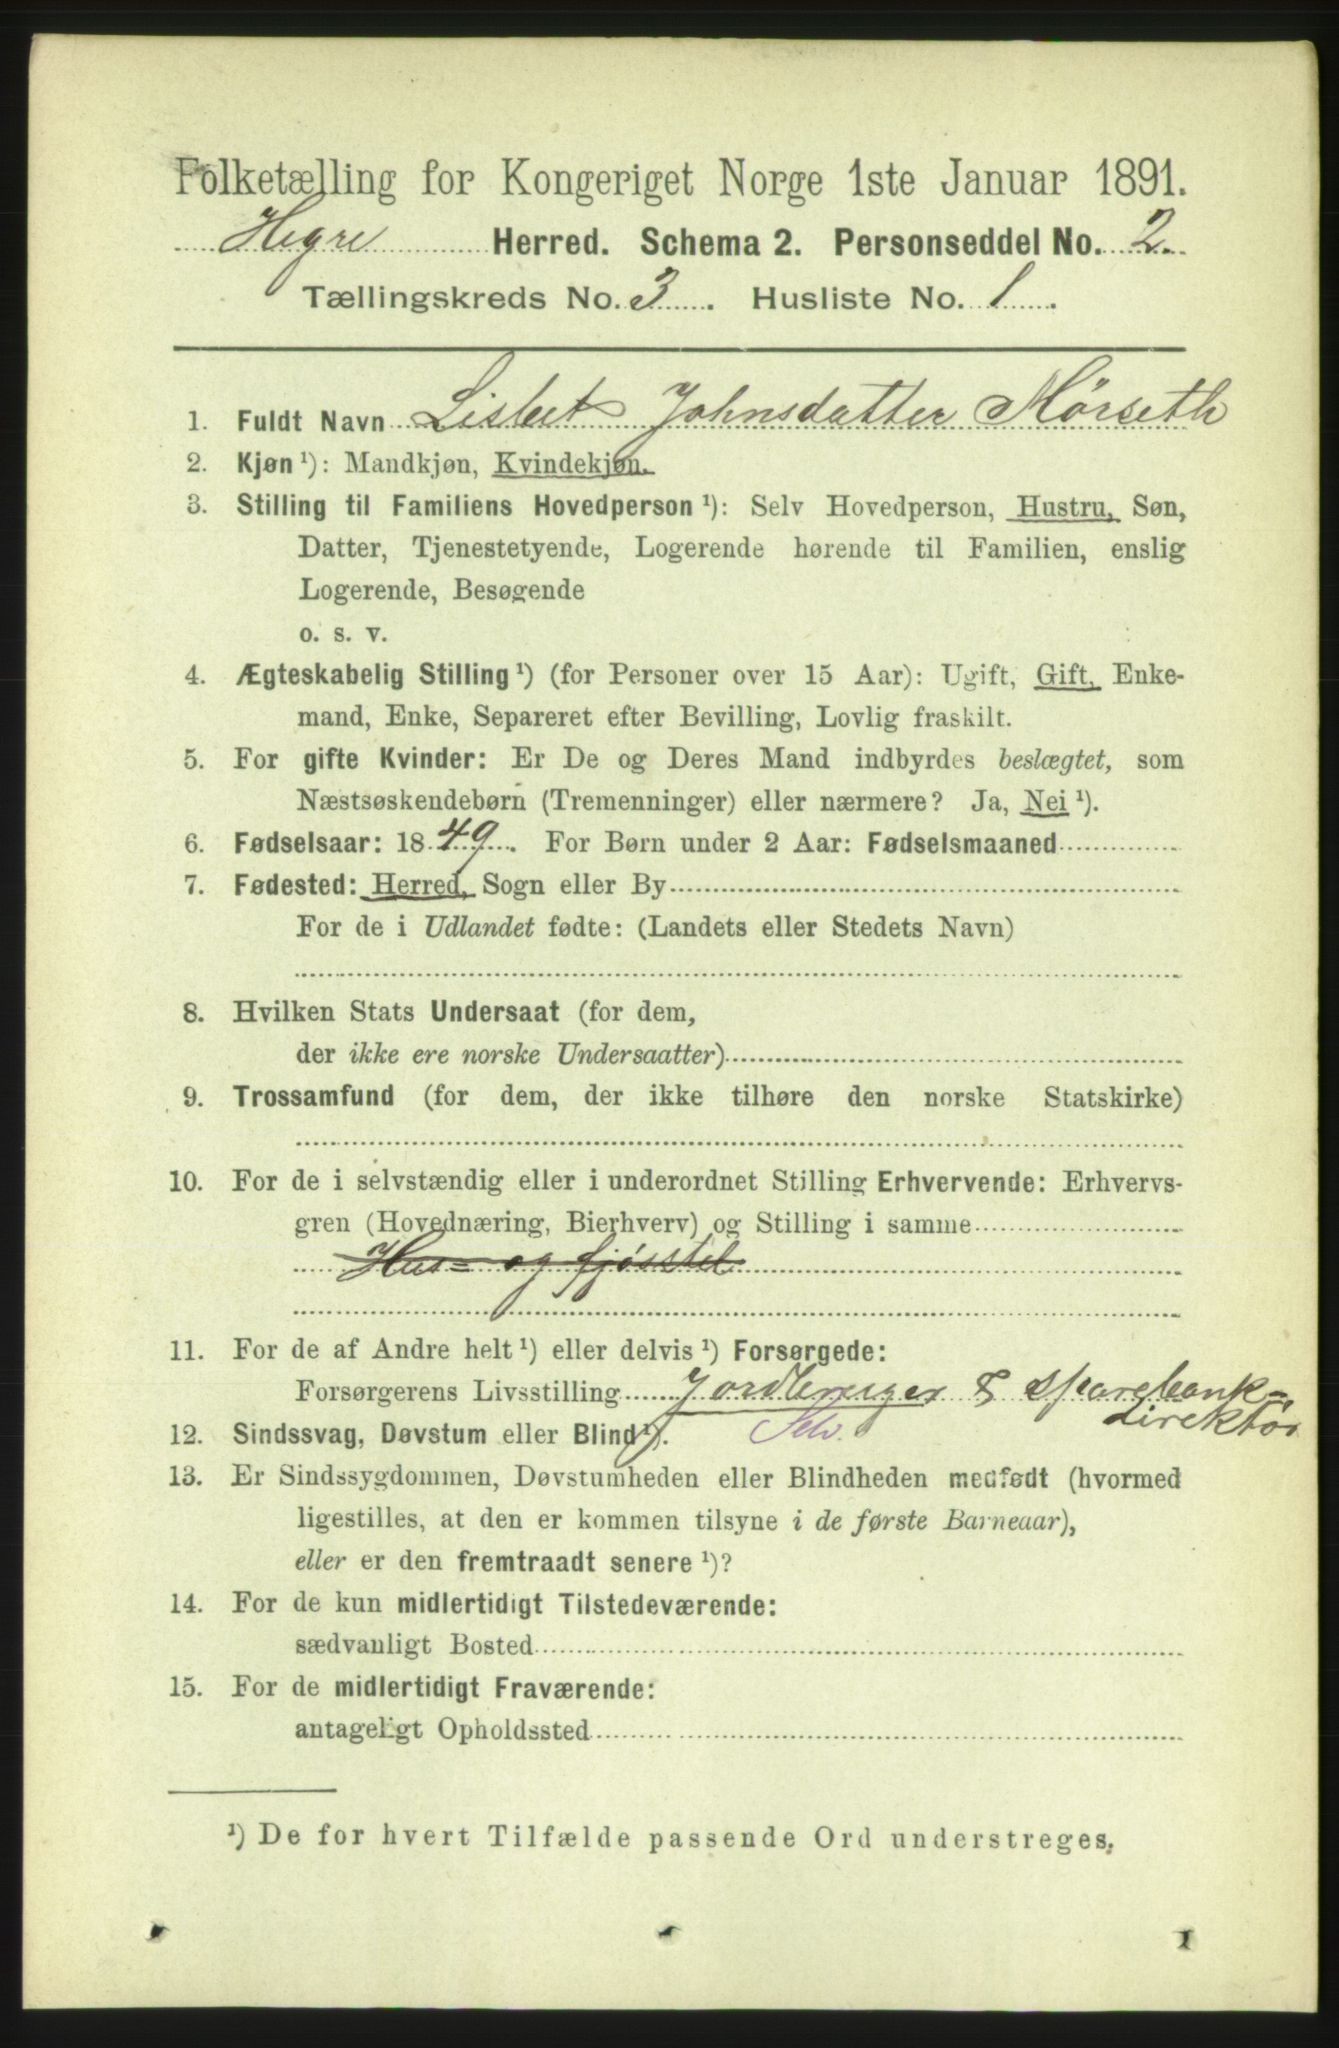 Folketælling for Kongeriget Norge 1ste Januar 1891.
Hegre Herred. Schema 2. Personseddel No. 2.
Tællingskreds No. 3. Husliste No. 1.
1. Fuldt Navn Lisbet Johnsdatter Mørseth
2. Kjøn ¹): Mandkjøn, Kvindekjøn.
3. Stilling til Familiens Hovedperson ¹): Selv Hovedperson, Hustru, Søn,
Datter, Tjenestetyende, Logerende hørende til Familien, enslig
Logerende, Besøgende
o. s. v.
4. Ægteskabelig Stilling ¹) (for Personer over 15 Aar): Ugift, Gift, Enke-
mand, Enke, Separeret efter Bevilling, Lovlig fraskilt.
5. For gifte Kvinder: Er De og Deres Mand indbyrdes beslægtet, som
Næstsøskendebørn (Tremenninger) eller nærmere? Ja, Nei ¹).
6. Fødselsaar: 1849. For Børn under 2 Aar: Fødselsmaaned
7. Fødested: Herred, Sogn eller By
For de i Udlandet fødte: (Landets eller Stedets Navn)
8. Hvilken Stats Undersaat (for dem,
der ikke ere norske Undersaatter)
9. Trossamfund (for dem, der ikke tilhøre den norske Statskirke)
10. For de i selvstændig eller i underordnet Stilling Erhvervende: Erhvervs-
gren (Hovednæring, Bierhverv) og Stilling i samme
Hus- og fjøsstel
11. For de af Andre helt ¹) eller delvis ¹) Forsørgede:
Forsørgerens Livsstilling Jordbruger & sparebank-
direktør
12. Sindssvag, Døvstum eller Blind ¹). Selv.
13. Er Sindssygdommen, Døvstumheden eller Blindheden medfødt (hvormed
ligestilles, at den er kommen tilsyne i de første Barneaar),
eller er den fremtraadt senere ¹)?
14. For de kun midlertidigt Tilstedeværende:
sædvanligt Bosted
15. For de midlertidigt Fraværende:
antageligt Opholdssted
¹) De for hvert Tilfælde passende Ord understreges.